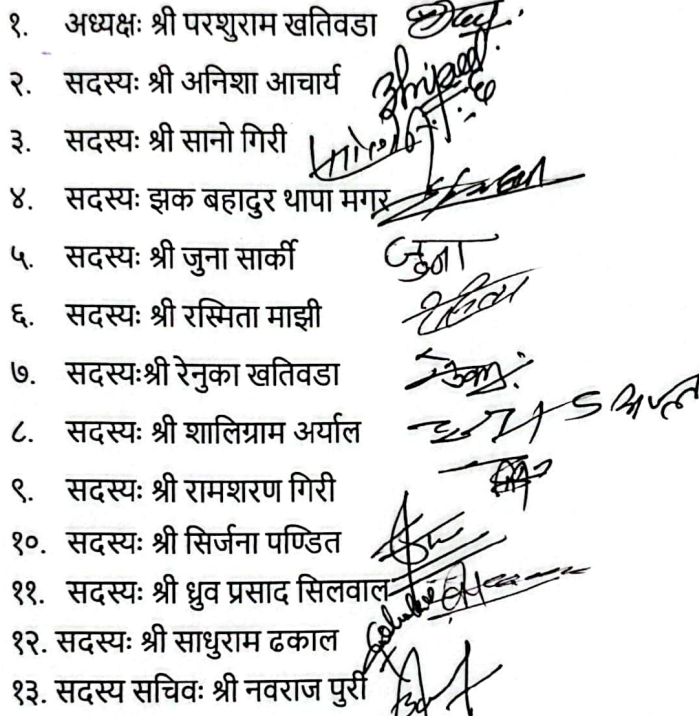 १. अध्यक्षः श्री परशुराम खतिवडा
२. सदस्यः श्री अनिशा आचार्य
३. सदस्यः श्री सानो गिरी
४. सदस्यः झक बहादुर थापा मगर
५. सदस्यः श्री जुना सार्की जुना
६. सदस्यः श्री रस्मिता माझी
७. सदस्यःश्री रेनुका खतिवडा
८. सदस्यः श्री शालिग्राम अर्याल
९. सदस्यः श्री रामशरण गिरी
१०. सदस्यः श्री सिर्जना पण्डित
११. सदस्यः श्री ध्रुव प्रसाद सिलवाल
१२. सदस्यः श्री साधुराम ढकाल
१३. सदस्य सचिवः श्री नवराज पुरी